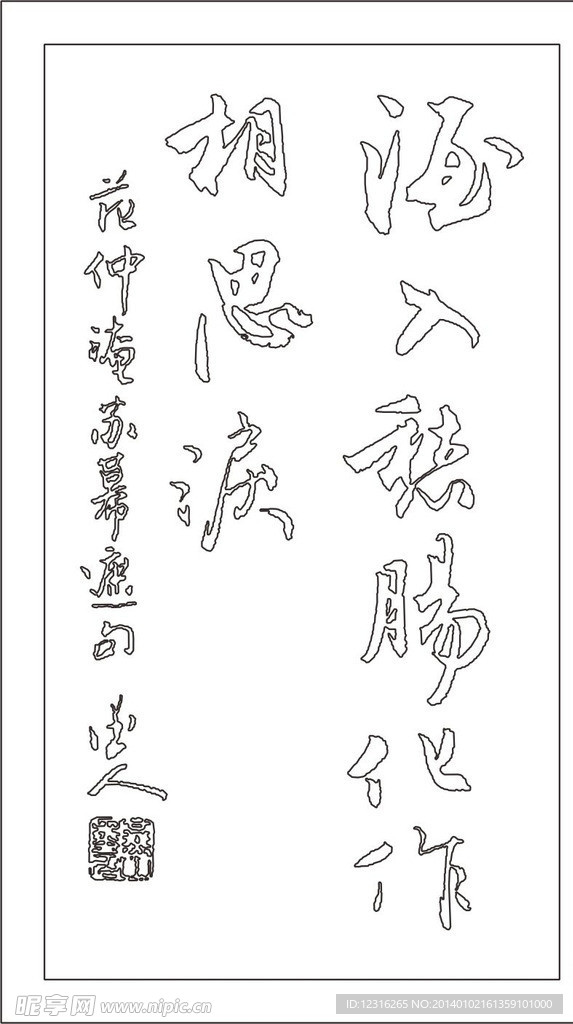 酒入愁腸化作
相思淚
范仲淹苏幕遮一句
昵享网 www.nipic.cn
ID:12316265 NO:20140102161359101000